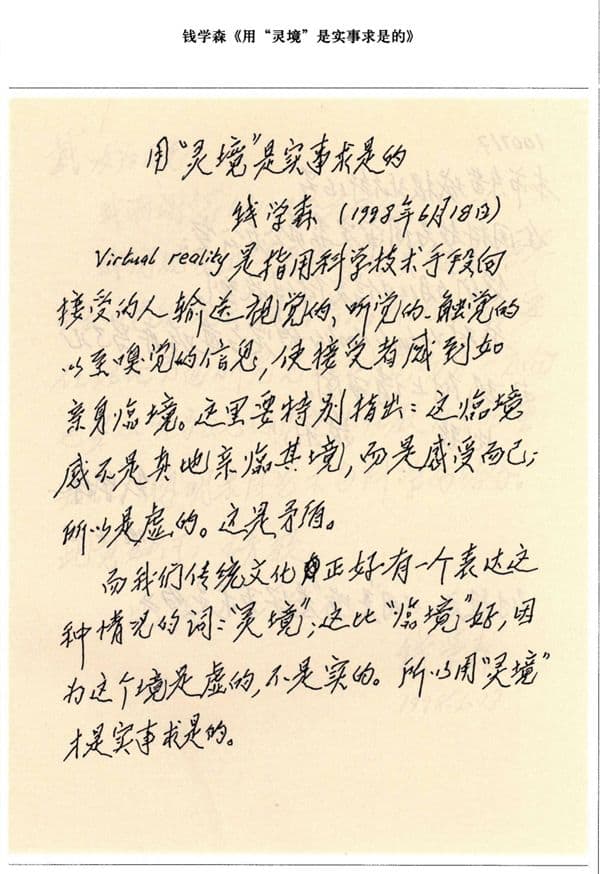 钱学森《用“灵境”是实事求是的》
用“灵境”是实事求是的
钱学森（1998年6月18日）
Virtual reality是指用科学技术手段向
接受的人输送视觉的、听觉的、触觉的
以至嗅觉的信息，使接受者感到如
亲身临境。这里要特别指出：这临境
感不是真地亲临其境，而是感受而已；
所以是虚的。这是矛盾。
而我们传统文化正好有一个表达这
种情况的词：“灵境”；这比“临境”好，因
为这个境是虚的，不是实的。所以用“灵境”
才是实事求是的。